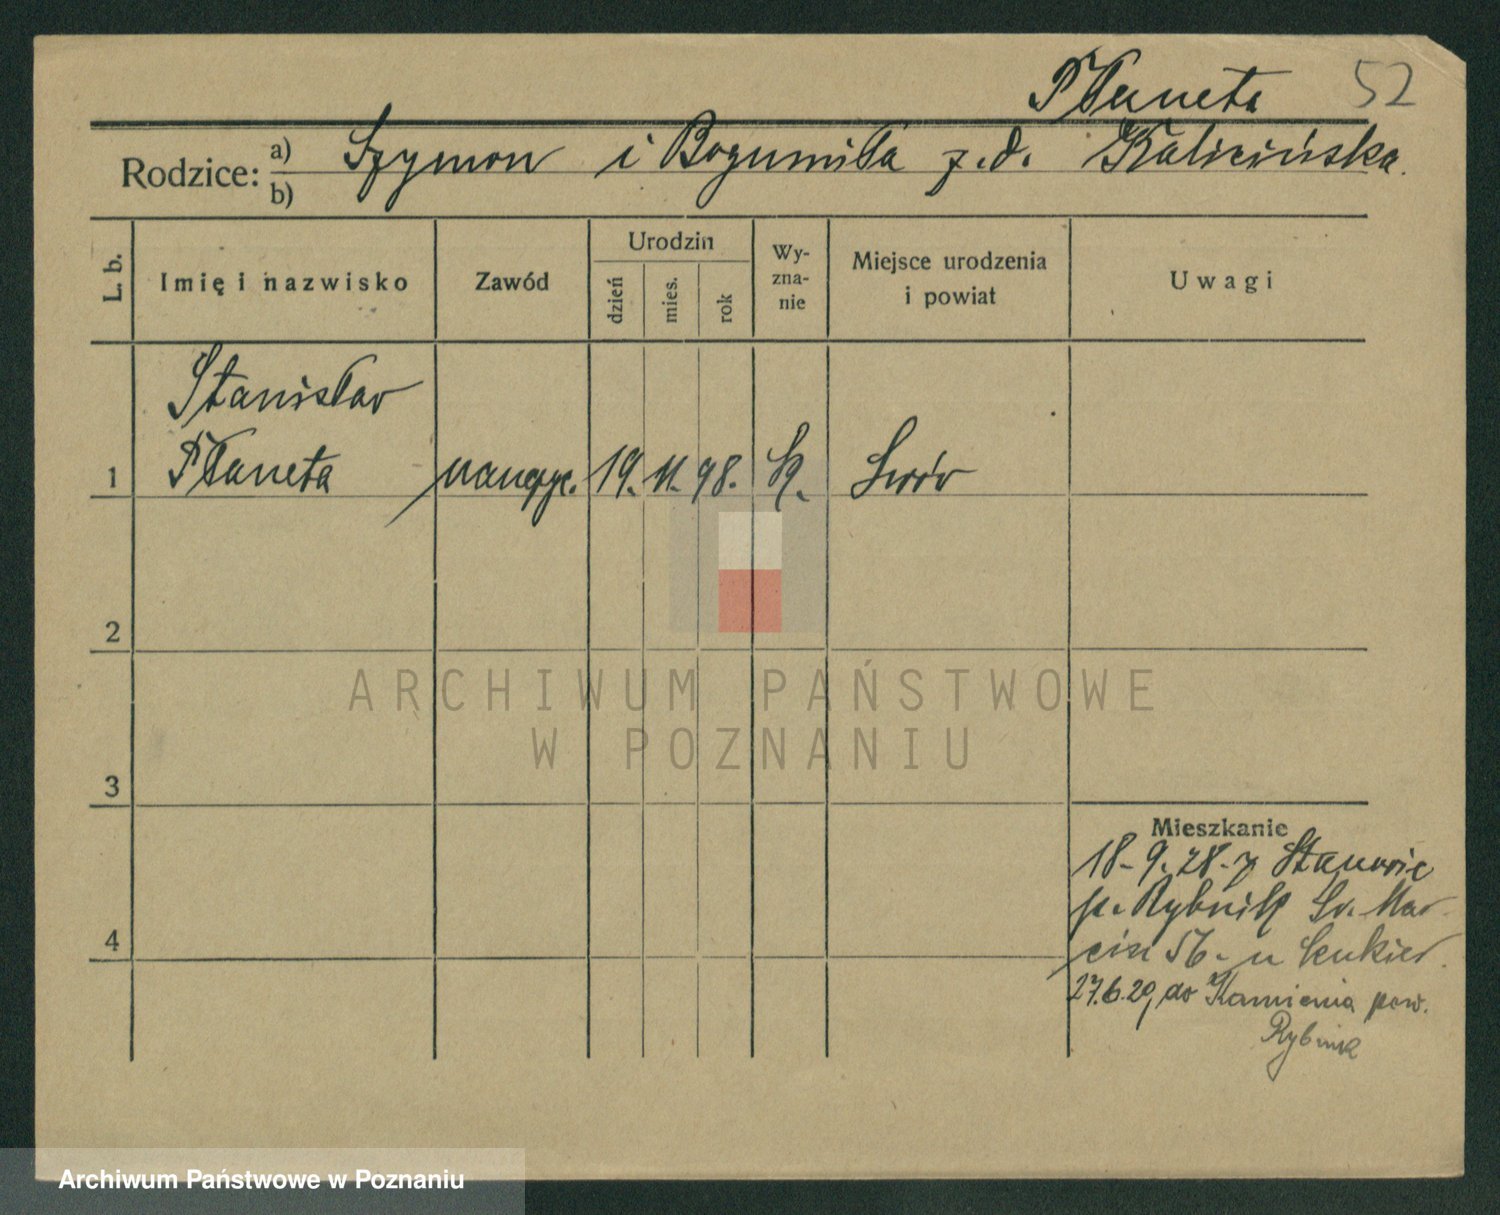 Płaneta 52
Rodzice: a) Szymon i Bogumiła z.d. Kalicińska.
b)
L. b. Imię i nazwisko Zawód Urodzin dzień mies. rok Wy-zna-nie Miejsce urodzenia i powiat Uwagi
Stanisław
1 Płaneta naucyc. 19. 11. 98. Lwów
2
ARCHIWUM PAŃSTWOWE
W POZNANIU
3
Mieszkanie
18-9.28-z Stanowic
p. Rybnik Św. Mar
4 cin 56. u Cukier.
27.6.29, do Kamienia pow.
Rybnik
Archiwum Państwowe w Poznaniu